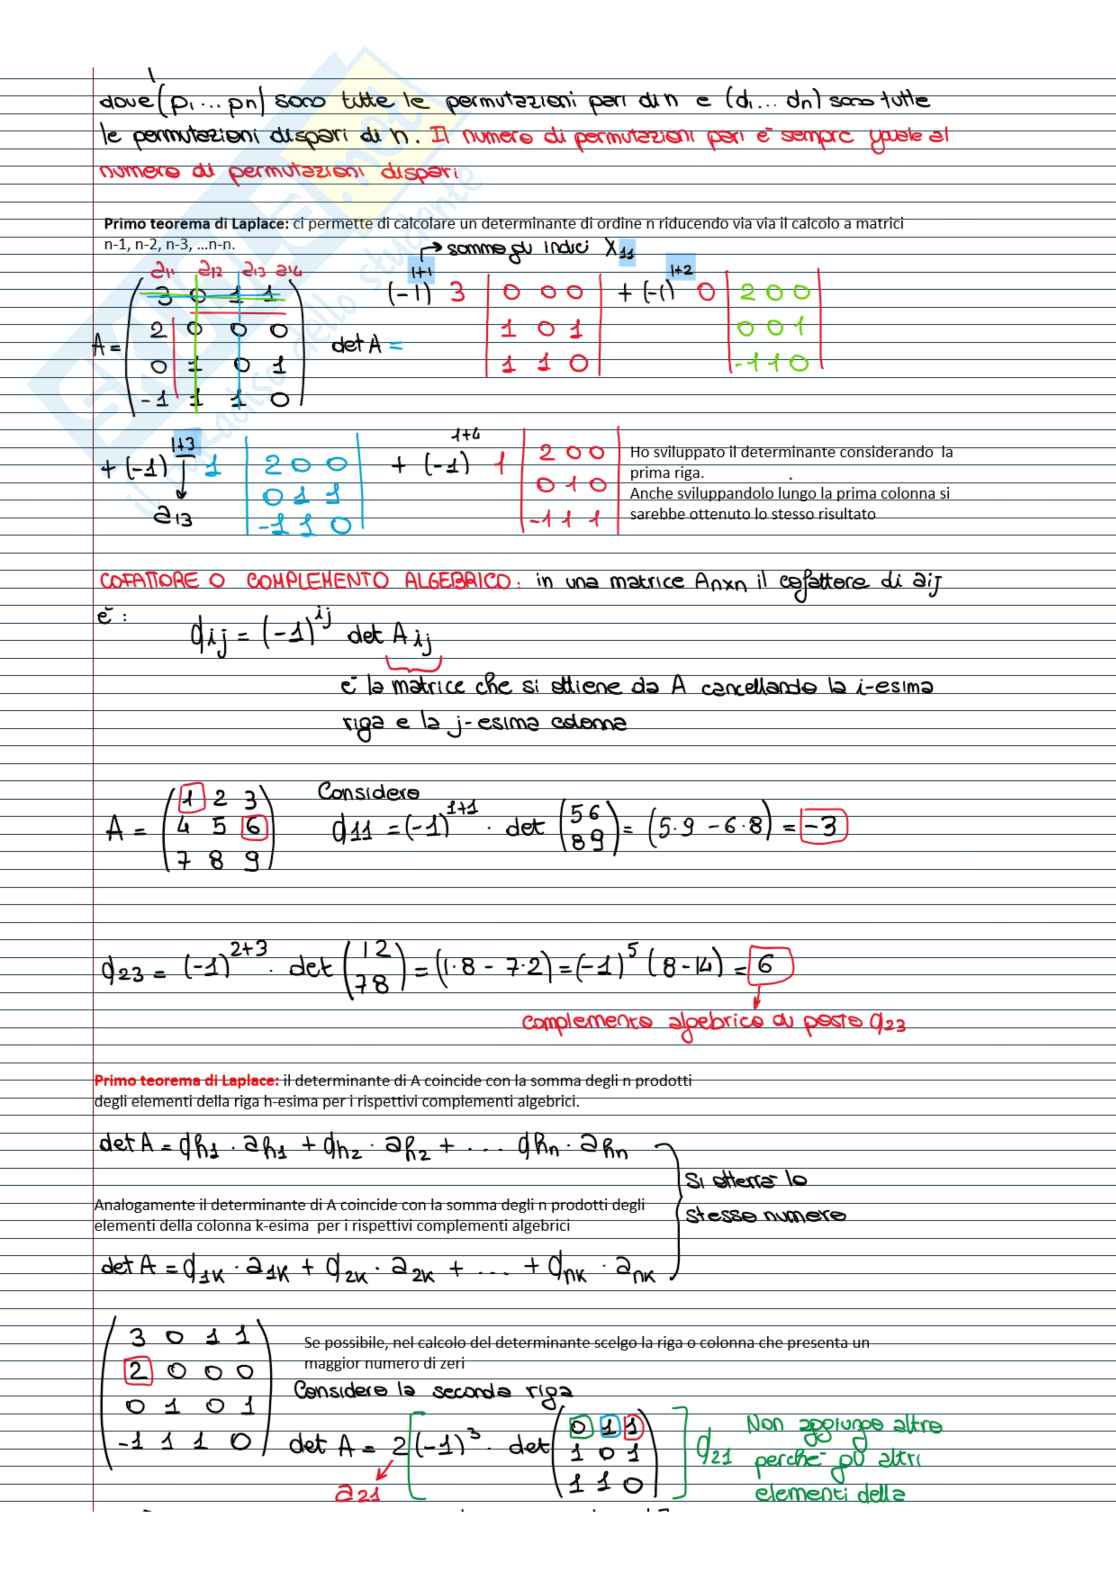 dove (p₁ ... pn) sono tutte le permutazioni pari di n e (d₁ ... dn) sono tutte
le permutazioni dispari di n. Il numero di permutazioni pari è sempre uguale al
numero di permutazioni dispari
Primo teorema di Laplace: ci permette di calcolare un determinante di ordine n riducendo via via il calcolo a matrici
n-1, n-2, n-3, ...n-n.
→ sommo gli indici X₁₁
a₁₁ a₁₂ a₁₃ a₁₄
A = (3 0 1 1
2 0 0 0
0 1 0 1
-1 1 1 0)
det A = (-1)¹⁺¹ 3 |0 0 0
1 0 1
1 1 0|
+ (-1)¹⁺² 0 |2 0 0
0 0 1
-1 1 0|
+ (-1)¹⁺³ 1 |2 0 0
0 1 1
-1 1 0|
a₁₃
+ (-1)¹⁺⁴ 1 |2 0 0
0 1 0
-1 1 1|
Ho sviluppato il determinante considerando la
prima riga.
Anche sviluppandolo lungo la prima colonna si
sarebbe ottenuto lo stesso risultato
COFATTORE O COMPLEMENTO ALGEBRICO: in una matrice Anxn il cofattore di aij
è:
qij = (-1)^ij det Aij
è la matrice che si ottiene da A cancellando la i-esima
riga e la j-esima colonna
A = (1 2 3
4 5 6
7 8 9)
Considero
q₁₁ = (-1)¹⁺¹ · det (5 6
8 9) = (5·9 - 6·8) = -3
q₂₃ = (-1)²⁺³ · det (1 2
7 8) = (1·8 - 7·2) = (-1)⁵ (8-14) = 6
complemento algebrico di posto q₂₃
Primo teorema di Laplace: il determinante di A coincide con la somma degli n prodotti
degli elementi della riga h-esima per i rispettivi complementi algebrici.
det A = qh₁ · ah₁ + qh₂ · ah₂ + ... qhn · ahn
Si otterrà lo
stesso numero
Analogamente il determinante di A coincide con la somma degli n prodotti degli
elementi della colonna k-esima per i rispettivi complementi algebrici
det A = q₁k · a₁k + q₂k · a₂k + ... + qnk · ank
(3 0 1 1
2 0 0 0
0 1 0 1
-1 1 1 0)
Se possibile, nel calcolo del determinante scelgo la riga o colonna che presenta un
maggior numero di zeri
Considero la seconda riga
det A = 2 [(-1)³ · det (0 1 1
1 0 1
1 1 0)] q₂₁
a₂₁
Non aggiungo altro
perchè gli altri
elementi della